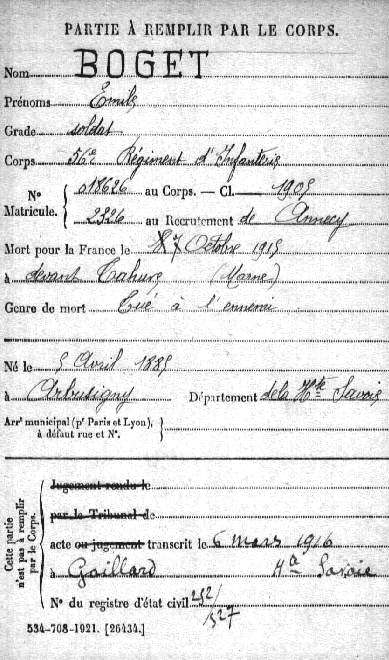 PARTIE À REMPLIR PAR LE CORPS.
Nom BOGET
Prénoms Emile
Grade soldat
Corps 56e Régiment d'Infanterie
N° Matricule. 018626 au Corps. — Cl. 1905
2326 au Recrutement de Annecy
Mort pour la France le 7 Octobre 1915
à devant Tahure (Marne)
Genre de mort Tué à l'ennemi
Né le 5 Avril 1885
à Arbusigny Département de la Hte Savoie
Arrt municipal (pr Paris et Lyon),
à défaut rue et N°.
Cette partie n'est pas à remplir par le Corps.
Jugement rendu le
par le Tribunal de
acte ou jugement transcrit le 6 mars 1916
à Gaillard Hte Savoie
N° du registre d'état civil 252/327
534-708-1921. [26434.]